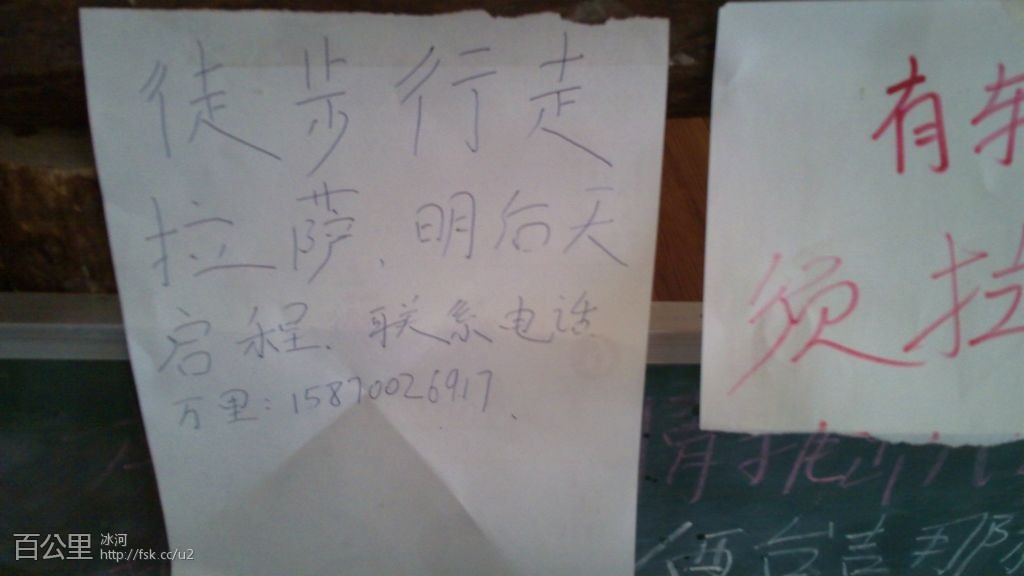 徒步行走
拉萨、明后天
启程、联系电话
万里：15870026917、
有车
须拉
百公里 冰河
http://fsk.cc/u2